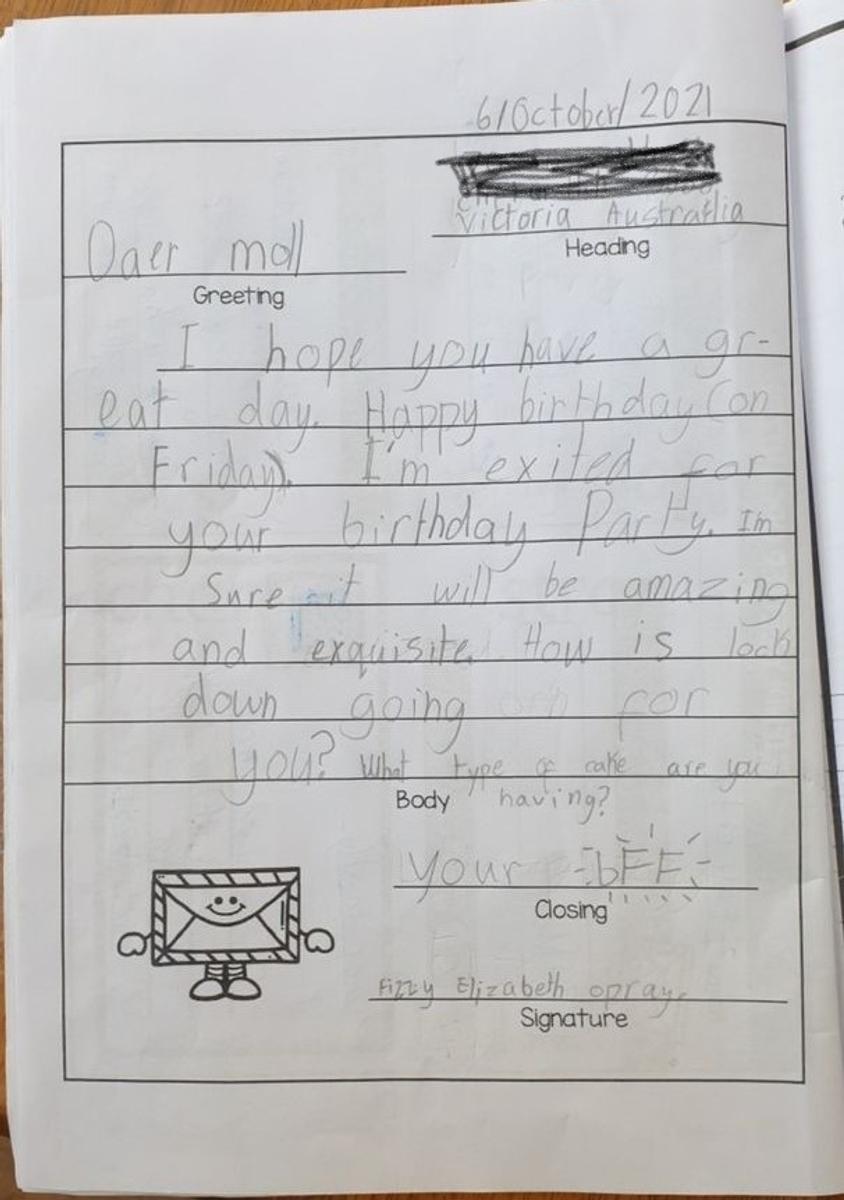 6/October/2021
Victoria Australia
Heading
Daer moll
Greeting
I hope you have a gr-
eat day. Happy birthday (on
Friday). I'm exited for
your birthday Party. Im
Sure it will be amazing
and exquisite. How is lock
down going for
you? What type of cake are you
having?
Body
your bFF
Closing
Fizzy Elizabeth opray
Signature